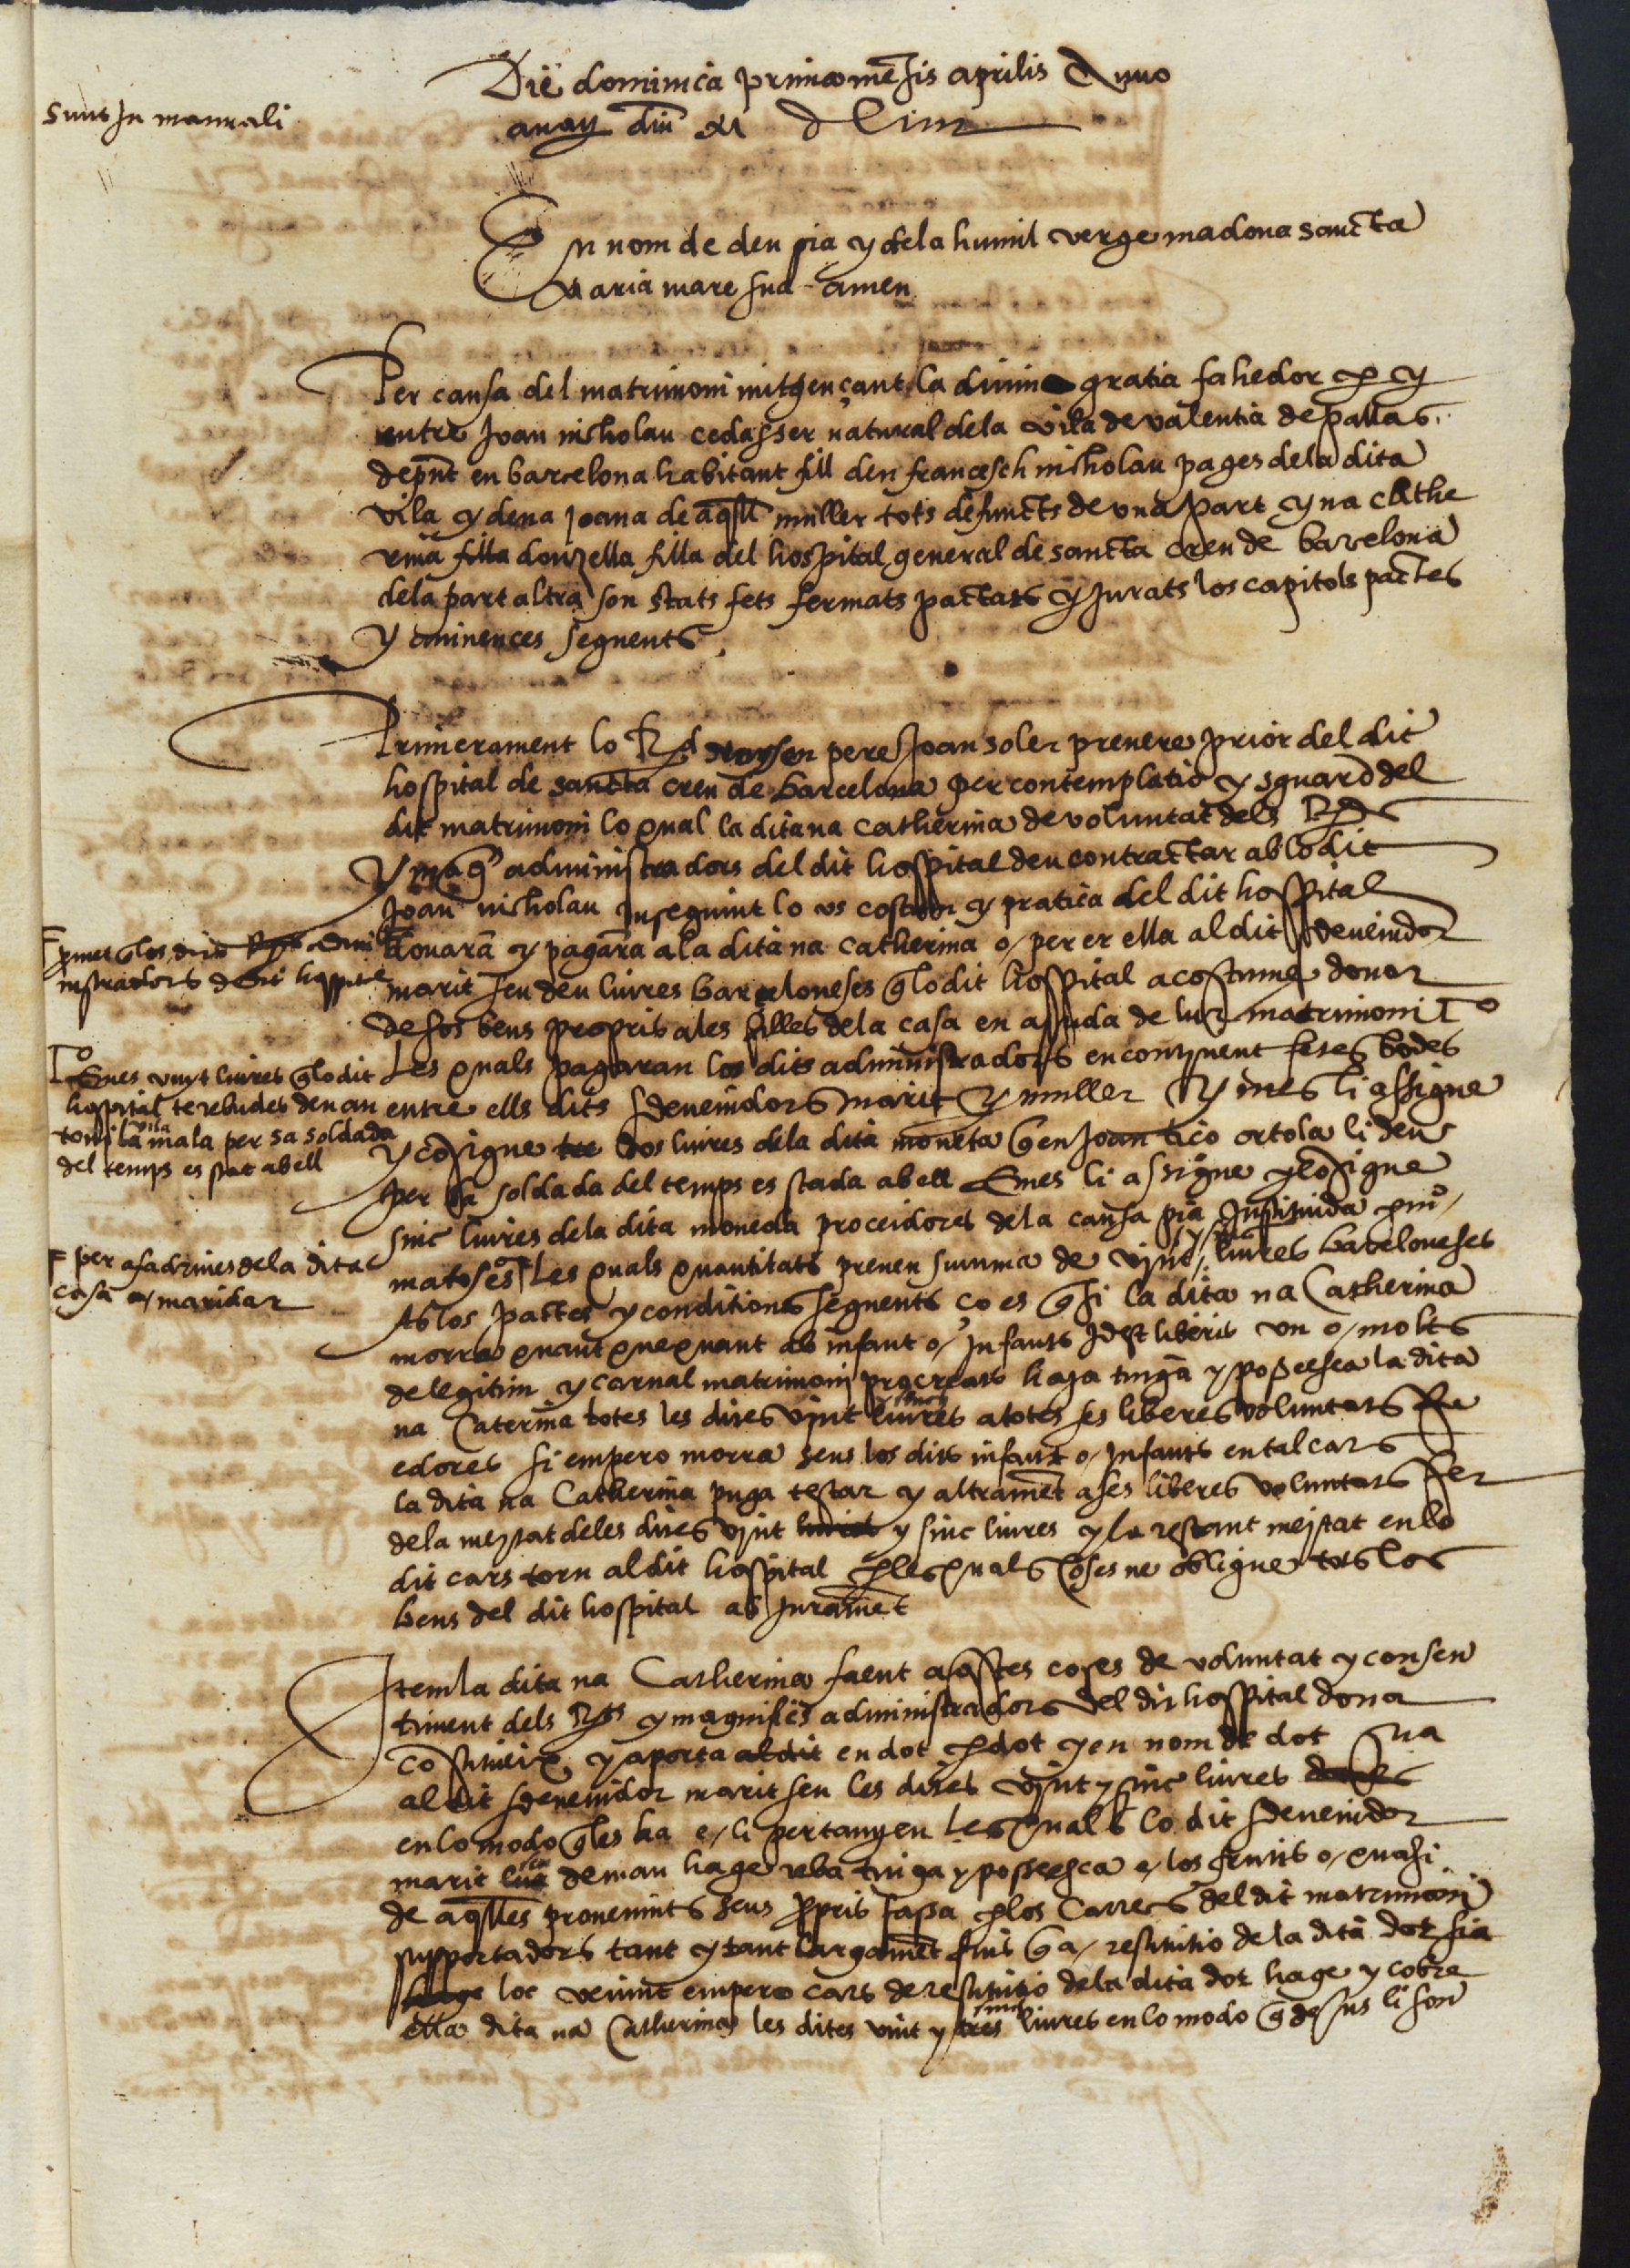 Die dominica prima mensis aprilis Anno
sunt In manuali
anat dni M D Liiii
En nom de deu sia y dela humil verge madona sancta
Maria mare sua amen
Per causa del matrimoni mitgençant la divina gratia fahedor per y
entre Joan nicholau cedasser natural dela vila de valentia de pallas
depnt en barcelona habitant fill den francesch nicholau pages dela dita
vila y dena Joana de aqll muller tots defuncts de una part y na Cathe
rina filla donzella filla del hospital general de sancta creu de barcelona
dela part altra son stats fets fermats pactats y Jurats los capitols pactes
y avinences seguents
Primerament lo Rd mossen pere Joan soler prevere prior del dit
hospital de sancta creu de barcelona per contemplatio y sguard del
dit matrimoni lo qual la dita na Catherina de voluntat dels Rds
y magchs administradors del dit hospital deu contractar ab lo dit
Joan nicholau Inseguint lo us costum y pratica del dit hospital
donara y pagara ala dita na Catherina o per er ella al dit sdevenidor
marit seu deu liures barceloneses q lo dit hospital acostuma donar
de sos bens propris ales filles dela casa en ajuda de lur matrimoni
Les quals pagaran los dits administradors encontinent fetes bodes
entre ells dits sdevenidors marit y muller y mes li assigne
y cosigne tre dos liures dela dita moneta q en Joan tico ortola li deu
per sa soldada del temps es stada ab ell E mes li assigne y cosigne
sinc liures dela dita moneda proceidores dela causa pia Instituida per mo
matoses Les quals quantitats prenen summa de vint y sinc liures barceloneses
Ab los pactes y conditions seguents ço es q si la dita na Catherina
morra quant que quant ab infant o Infants Idest liberis un o molts
de legitim y carnal matrimoni procreats haja tinga y possesca la dita
na Caterina totes les dites vint y sinch liures a totes ses liberes voluntats fa
edores si empero morra sens los dits infant o Infants en tal cars
la dita na Catherina puga testar y altrament a ses liberes voluntats fer
dela meytat deles dites vint liures y sinc liures y la restant meytat en lo
dit cars torn al dit hospital per les quals coses ne obligue tots los
bens del dit hospital ab Jurament
Fermen los dits Rds admi
nistradors d dit hospital
E mes vuyt liures q lo dit
hospital te rebudes den an
toni la vila mala per sa soldada
del temps es stat ab ell
per afadrines dela dita
casa a maridar
Item la dita na Catherina faent aqstes coses de voluntat y consen
timent dels Rds y magnifichs administradors del dit hospital dona
costitueix y aporta al dit en dot per dot y en nom de dot sua
al dit sdevenidor marit seu les dites vint y sinc liures dotals
en lo modo q les ha e li pertanyen Les quals lo dit sdevenidor
marit sua deman hage reba tinga y possesca e los fruits o quasi
de aqlles provenints seus propris fassa per los Carrecs del dit matrimoni
supportadors tant y tant largament fins q a restitutio dela dita dot sia
hage loc venint empero cars de restitutio dela dita dot hage y cobre
ella dita na Catherina les dites vint y tres sinc liures en lo modo q desus li son